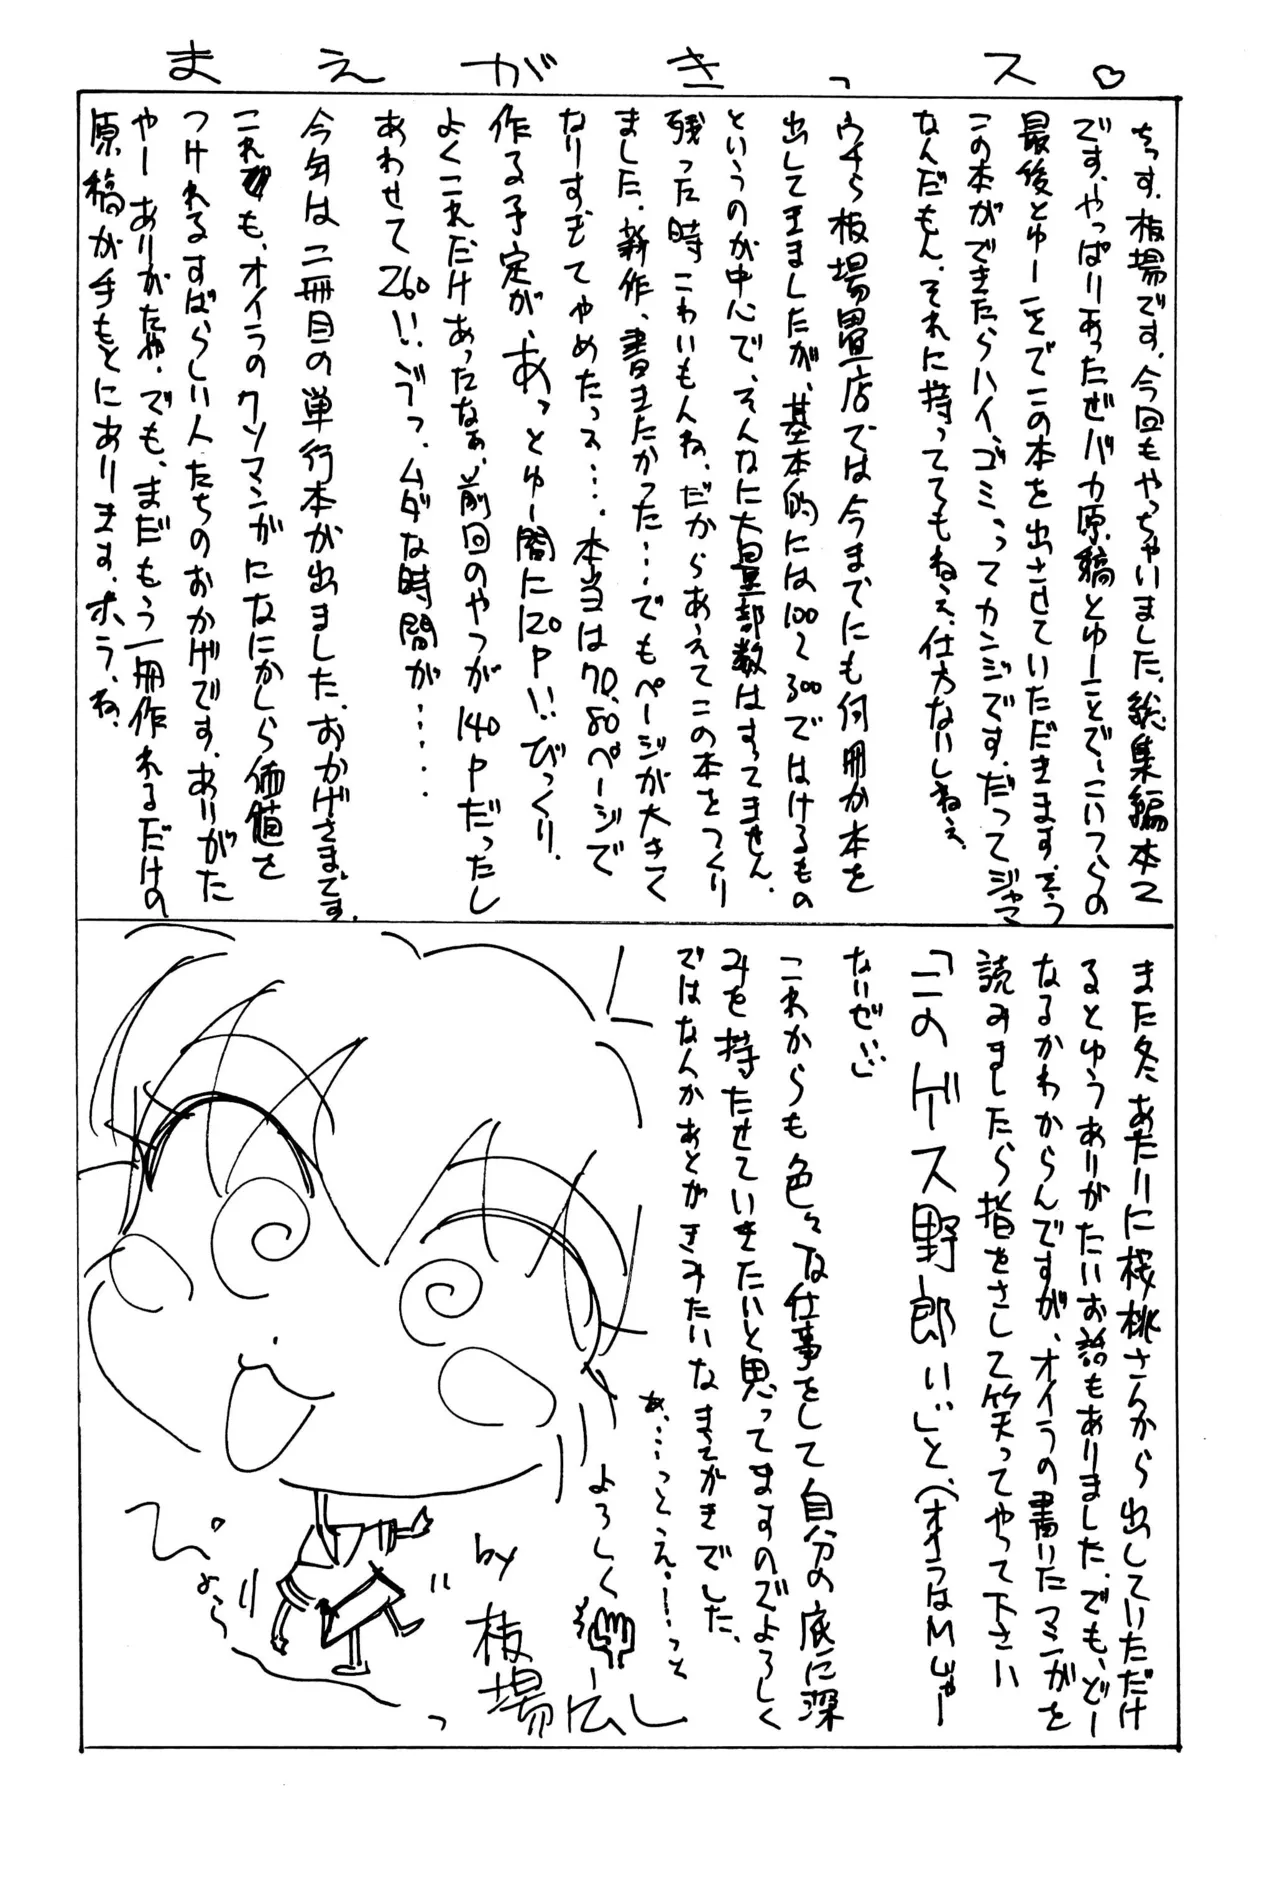 まえがきっス♡
ちっす。板場です。今回もやっちゃいました、総集編本２
です。やっぱりあったぜバカ原稿とゆーことで、こいつらの
最後とゆーことでこの本を出させていただきます。もう
この本ができたらハイ、ゴミ、ってカンジです。だってジャマ
なんだもん。それに持っててもねぇ、仕方ないしねぇ。
ウチら板場畳店では今までにも何冊か本を
出してきましたが、基本的には100～300ではけるもの
というのが中心で、そんなに大量部数はすってません。
残った時こわいもんね。だからあえてこの本をつくり
ました。新作、書きたかった……でもページが大きく
なりすぎてやめたっス……本当は70、80ページで
作る予定が、あっとゆー間に120P!!びっくり。
よくこれだけあったなぁ、前回のやつが140Pだったし
あわせて260!!ゔっ、ムダな時間が……
今年は二冊目の単行本が出ました。おかげさまです。
これも、オイラのクソマンガになにかしら価値を
つけれるすばらしい人たちのおかげです。ありがた
やー ありがたや。でも、まだもう一冊作れるだけの
原稿が手もとにあります。ホラ、ね。
また冬あたりに桜桃さんから出していただけ
るとゆうありがたいお話もありました。でも、どー
なるかわからんですが、オイラの書いたマンガを
読みましたら指をさして笑ってやって下さい
「このゲース野郎!!」と、(オイラはMじゃー
ないぜ!!)
これからも色々な仕事をして自分の底に深
みを持たせていきたいと思ってますのでよろしく
ではなんかあとがきみたいなまえがきでした。
あ……っとえ……っと
よろしく
by
板場広し
ぴょらっ